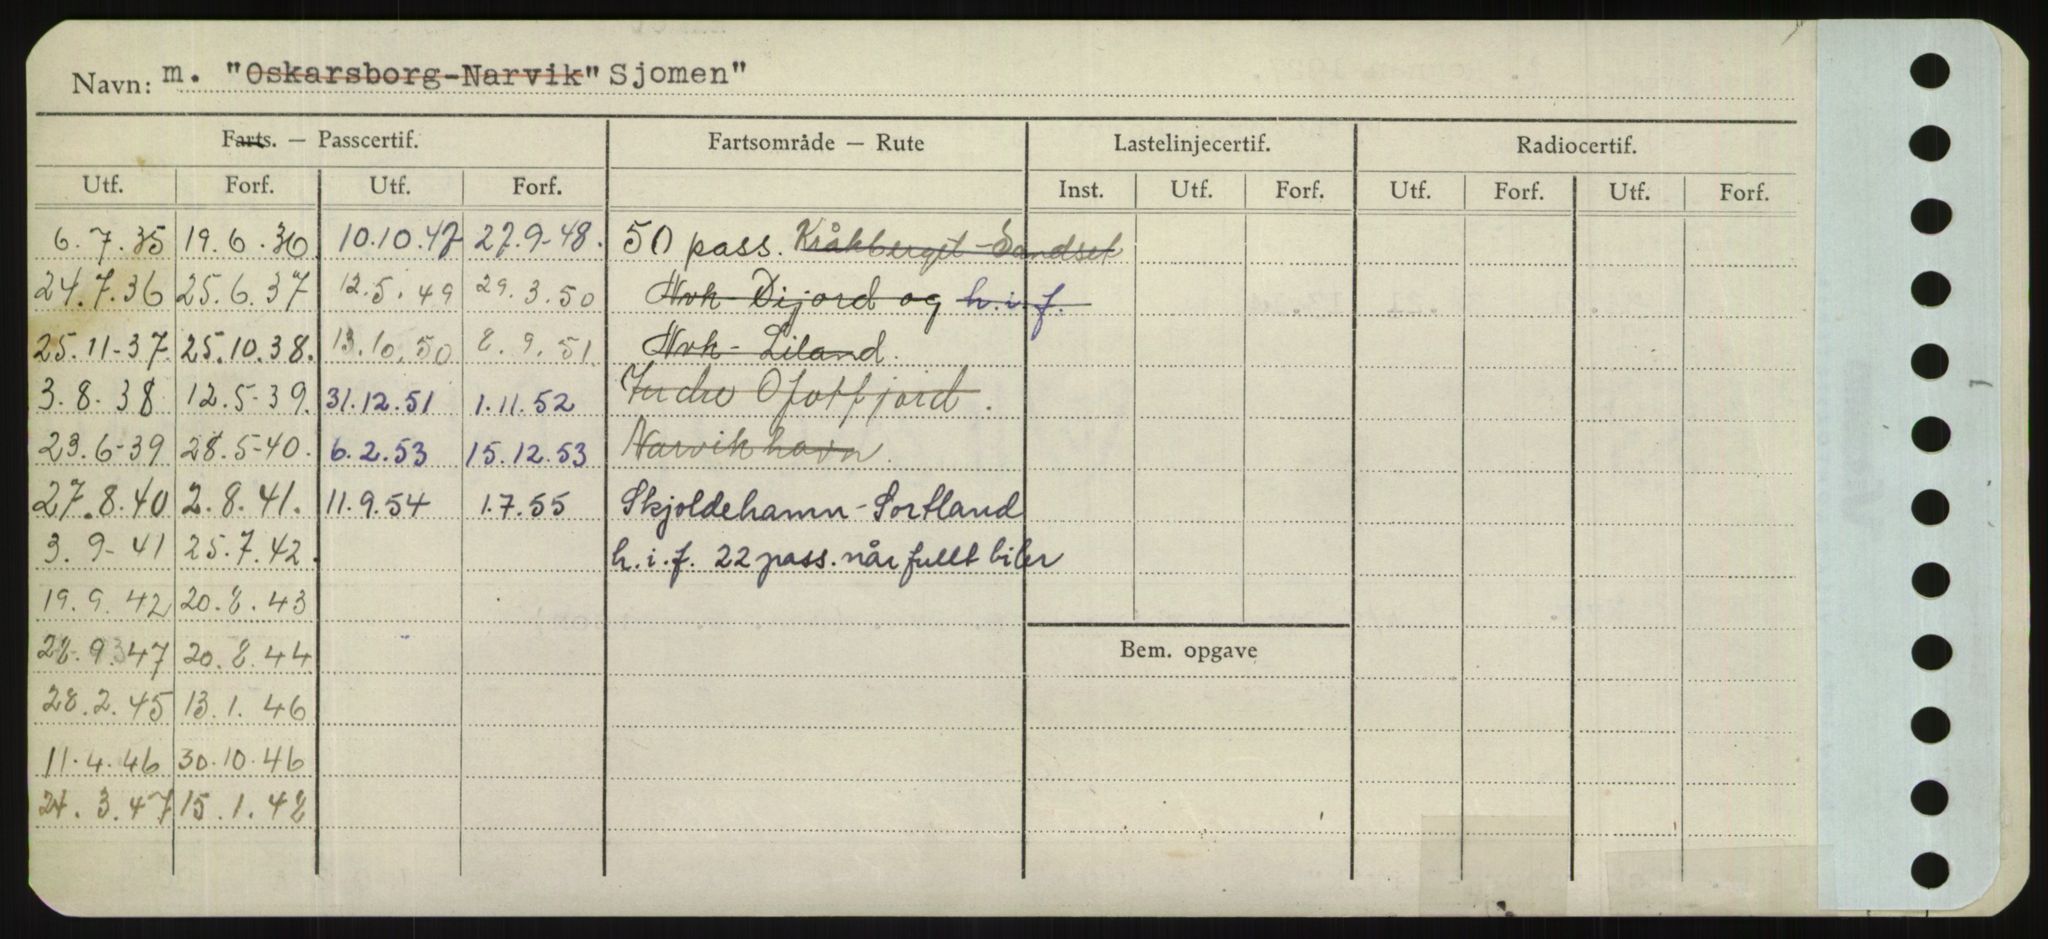 Navn: m. "Oskarsborg-Narvik" Sjomen"
Farts. — Passcertif. Fartsområde — Rute Lastelinjecertif. Radiocertif.
Utf. Forf. Utf. Forf. Inst. Utf. Forf. Utf. Forf. Utf. Forf.
6.7.35 19.6.36 10.10.47 27.9-48. 50 pass. Kråkberget-Sandset
24.7.36 25.6.37 12.5.49 29.3.50 Nvk- Dijord og h.i.f.
25.11-37. 25.10.38. 13.10.50 8.9.51 Nvk- Liland.
3.8.38 12.5-39. 31.12.51 1.11.52 Indre Ofotfjord.
23.6-39 28.5-40. 6.2.53 15.12.53 Narvik havn.
27.8.40 2.8.41. 11.9.54 1.7.55 Skjoldehamn-Sortland
3.9-41 25.7.42. h.i.f. 22 pass. når fullt biler
19.9.42 20.8.43
28.9.47 20.8.44 Bem. opgave
28.2.45 13.1.46
11.4.46 30.10.46
24.3.47 15.1.48